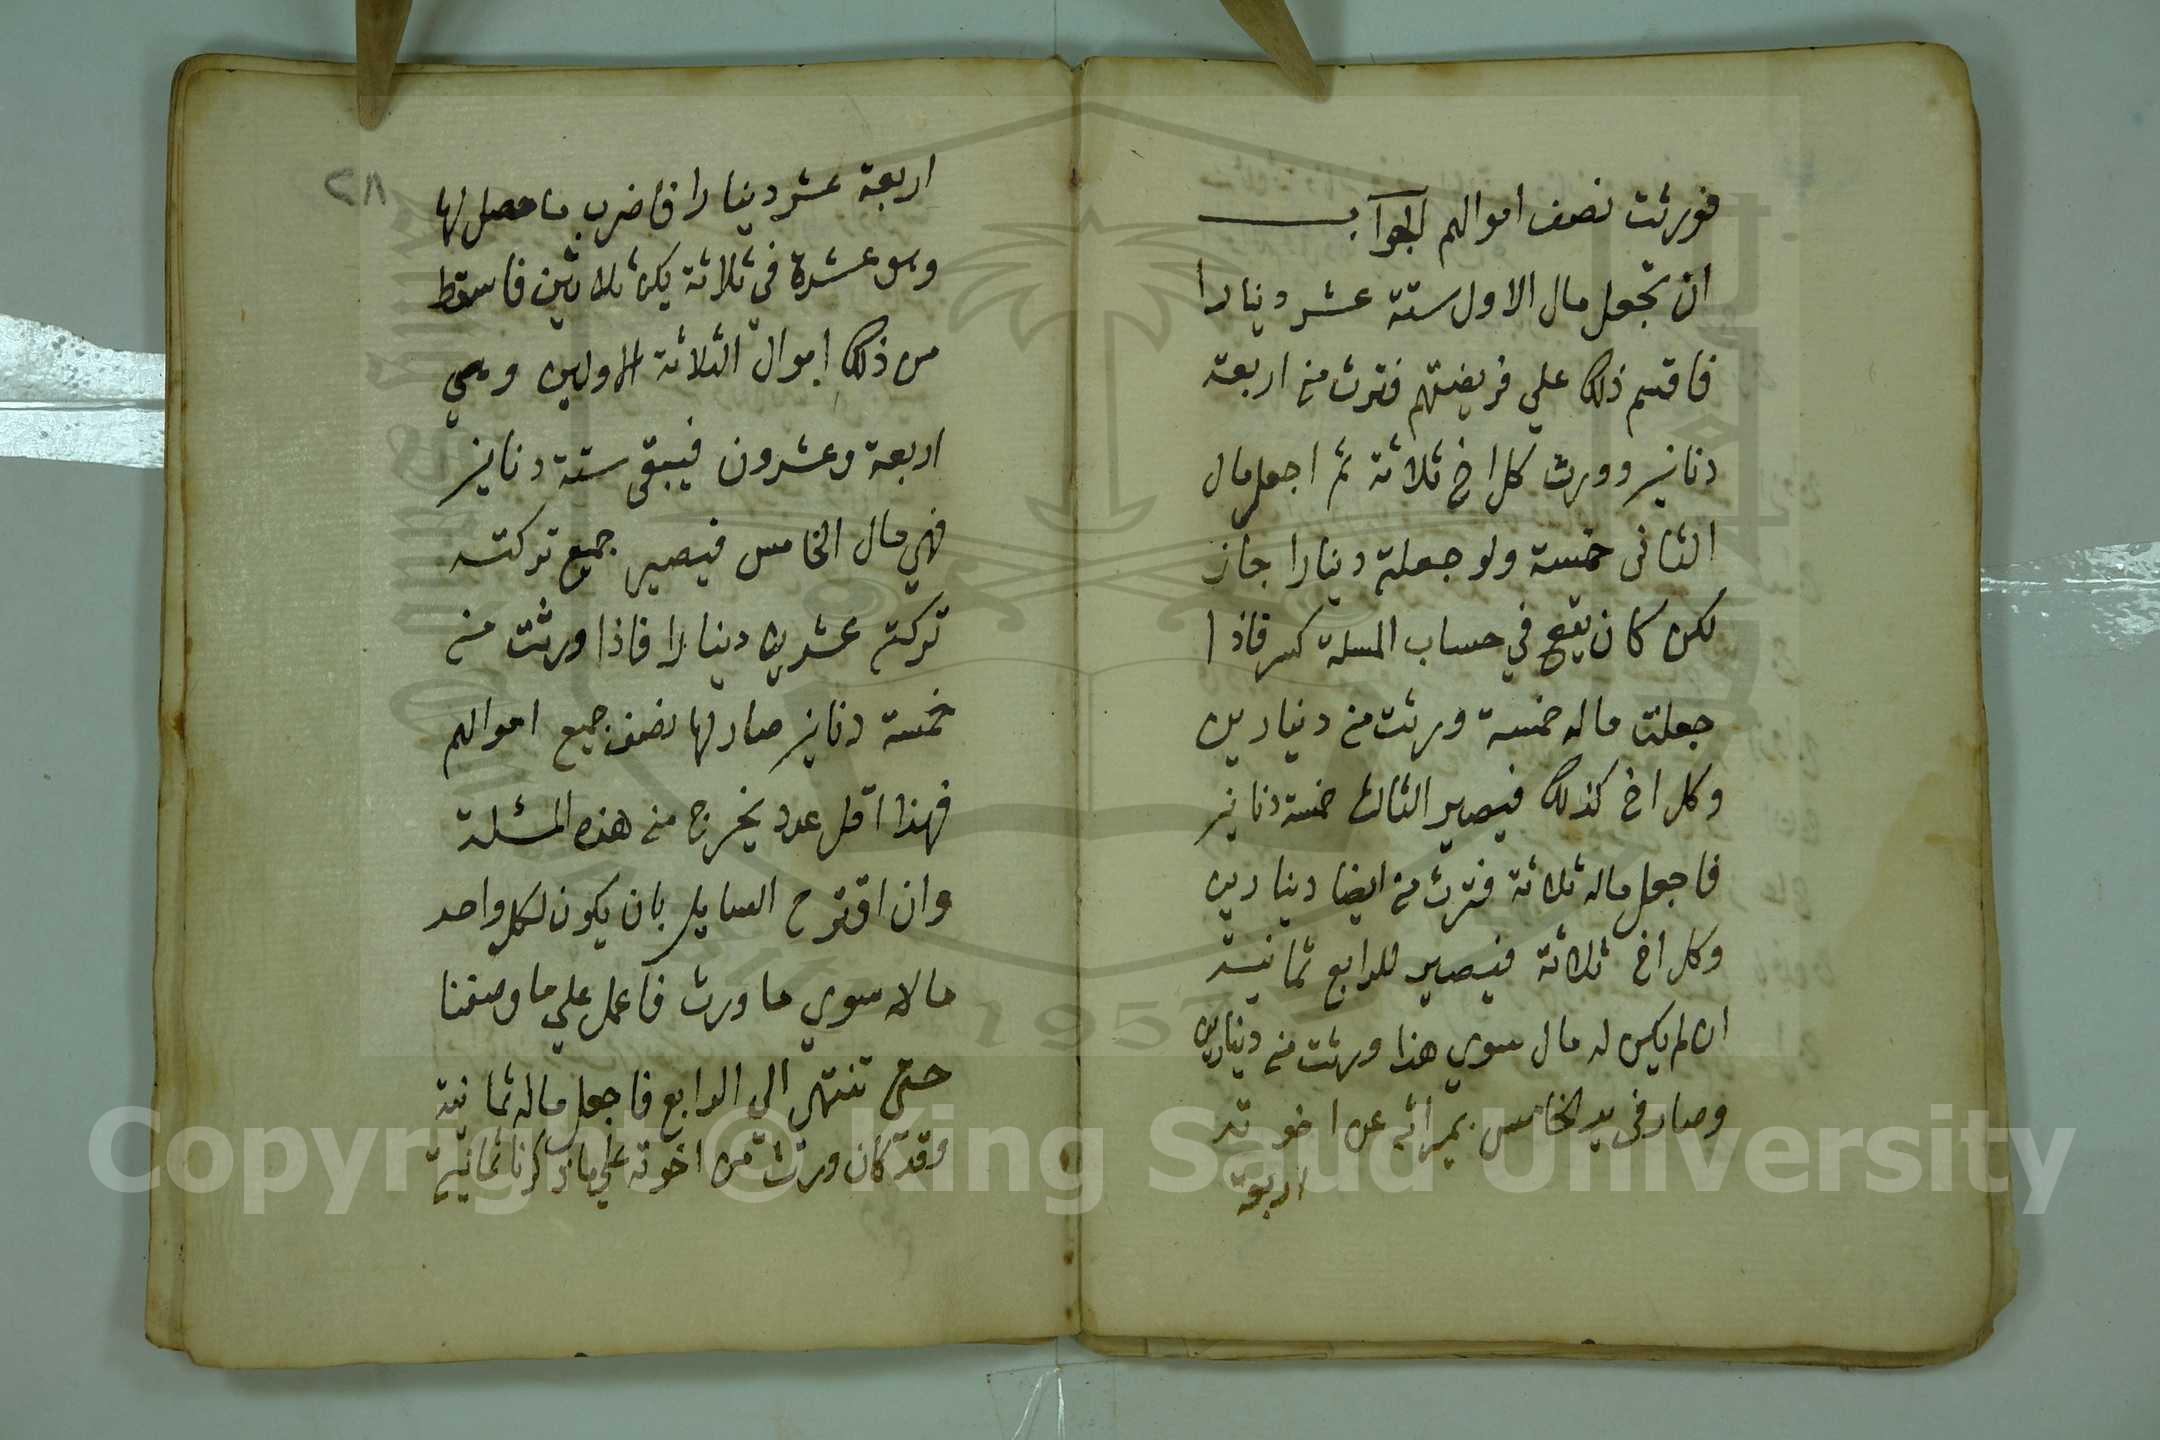 فورثت نصف اموالهم الجواب
ان تجعل مال الاول ستة عشر دينارا
فاقسم ذلك علي فريضتهم فترث منه اربعة
دنانير وورث كل اخ ثلاثة ثم اجعل مال
الثاني خمسة ولو جعلته دينارا جاز
لكن كان يقع في حساب المسلة كسر فاذا
جعلت ماله خمسة ورثت منه دينارين
وكل اخ كذلك فيصير الثالث خمسة دنانير
فاجعل ماله ثلاثة فترث منه ايضا دينارين
وكل اخ ثلاثة فيصير للرابع ثمانية
ان لم يكن له مال سوي هذا ورثت منه دينارين
وصار في يد الخامس بميراثه عن اخوته
اربعة
٢٨
اربعة عشر دينارا فاضرب ما حصل لها
وهو عشرة في ثلاثة يكن ثلاثين فاسقط
من ذلك اموال الثلاثة الاولين وهي
اربعة وعشرون فيبقى ستة دنانير
فهي مال الخامس فيصير جميع تركته
تركته عشرين دينارا فاذا ورثت منه
خمسة دنانير صار لها نصف جميع اموالهم
فهذا اقل عدد يخرج منه هذه المسئلة
وان اقترح السايل بان يكون لكل واحد
مالا سوي ما ورث فاعمل علي ما وصفنا
حتى تنتهي الي الرابع فاجعل ماله ثمانية
وقد كان ورث من اخوته علي ما ذكرنا ثمانية
1957
Copyright © King Saud University